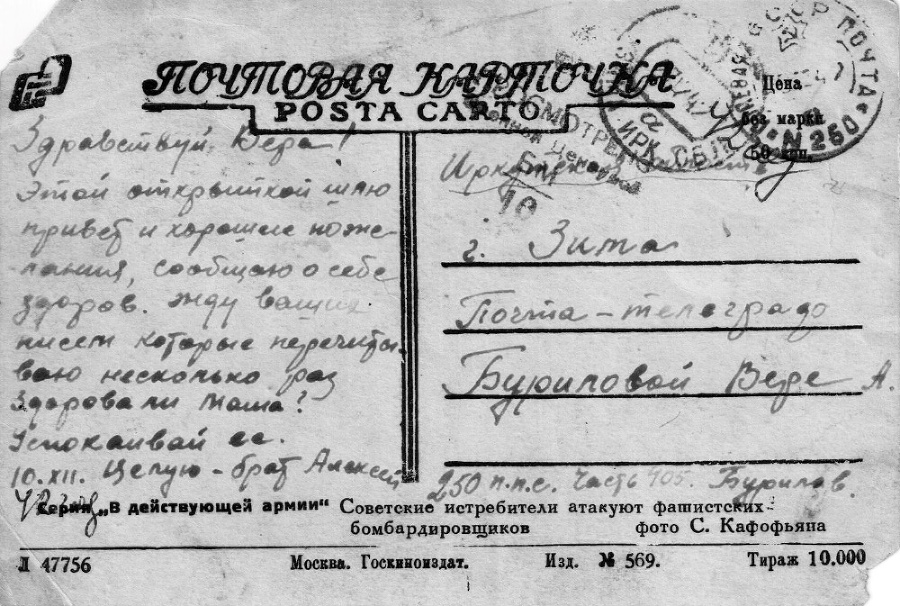 ПОЧТОВАЯ КАРТОЧКА
POSTA CARTO
Цена
без марки
50 коп.
СССР ПОЧТА
N 250
ИРК. ОБЛ.
ПРОСМОТРЕНО
Военной Цензурой
10
Здравствуй, Вера!
Этой открыткой шлю
привет и хорошие поже-
лания, сообщаю о себе
здоров. Жду ваших
писем которые перечиты-
ваю несколько раз
Здорова ли Мама?
Успокаивай ее.
10.XII. Целую - брат Алексей
Иркутская область
г. Зима
Почта - телеграф
Буриловой Вере А.
250 п.п.с. Часть 405. Бурилов.
Серия „В действующей армии“ Советские истребители атакуют фашистских
бомбардировщиков фото С. Кафофьяна
Л 47756 Москва. Госкиноиздат. Изд. № 569. Тираж 10.000